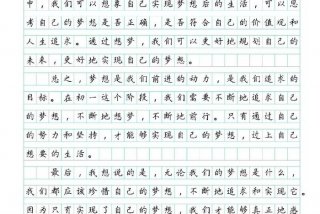 中，我们可以想象自己实现梦想后的生活，可以思
考自己的梦想是否正确，是否符合自己的价值观和
人生追求。通过想梦，我们可以更好地规划自己的
未来，更好地实现自己的梦想。
总之，梦想是我们前进的动力，是我们追求的
目标。在初一这个阶段，我们需要不断地追求自己
的梦想，不断地想梦，不断地前行。只有通过自己
的努力和坚持，才能够实现自己的梦想，过上自己
想要的生活。
最后，我想说的是，无论我们的梦想是什么，
我们都应该珍惜自己的梦想，不断地追求和实现它。
因为只有实现了自己的梦想，我们才能够真正地感